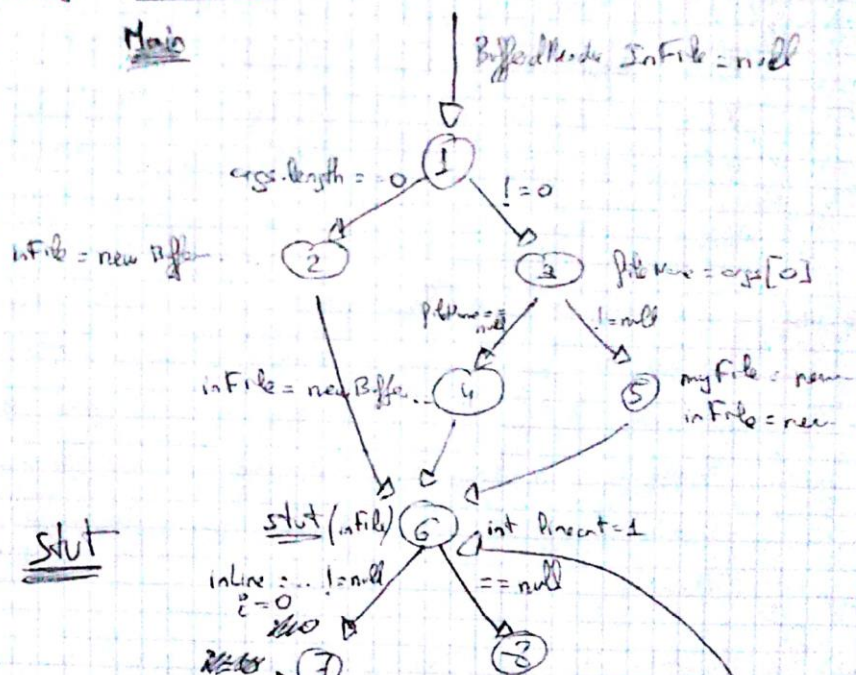 Main
InFile = null
1
args.length == 0
! = 0
inFile = new Buffe
2
3
fileName = args[0]
fileName == null
! = null
inFile = new Buffe...
4
5
myFile = new
inFile = new
stut
stut(inFile)
6
int linecnt = 1
inLine = ... != null
== null
i = 0
7
8